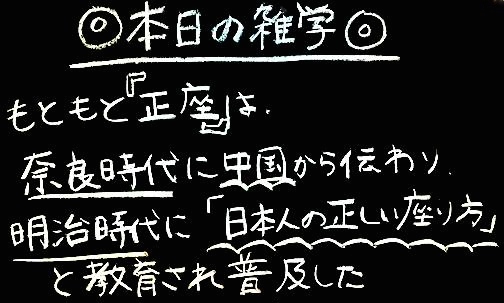 ◎本日の雑学◎
もともと『正座』は、
奈良時代に中国から伝わり、
明治時代に「日本人の正しい座り方」
と教育され普及した